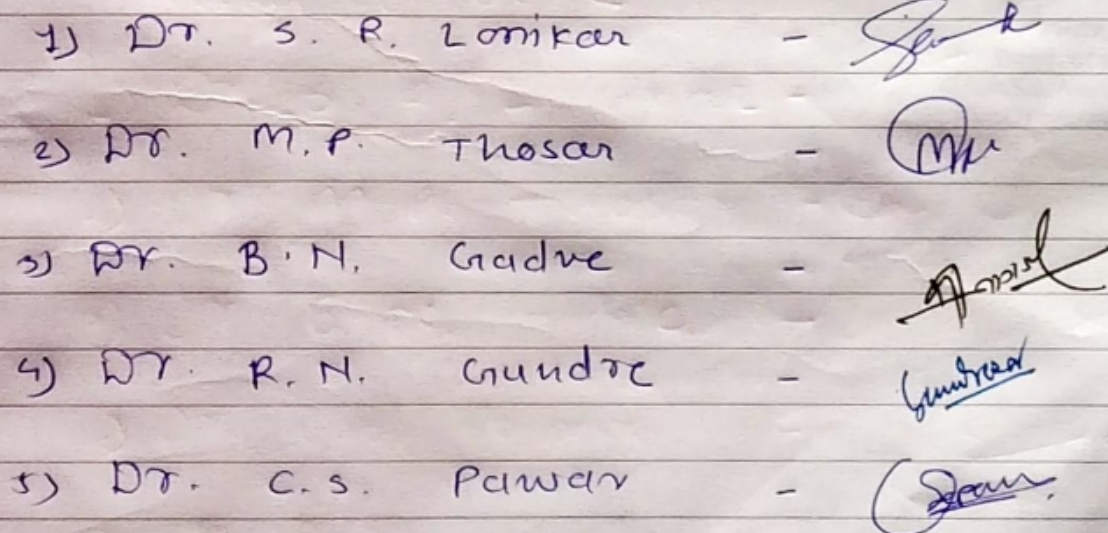 1) Dr. S. R. Lonikar -
2) Dr. M. P. Thosar -
3) Dr. B. N. Gadve -
4) Dr. R. N. Gundre -
5) Dr. C. S. Pawar -